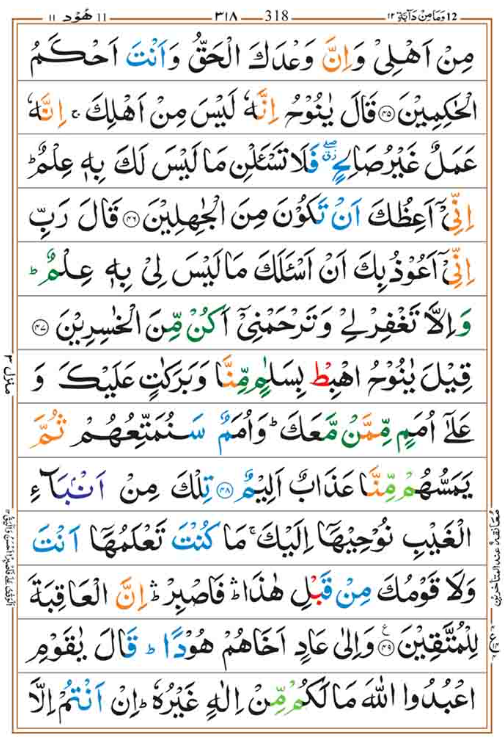 ١١ هُوۡد ١١ ٣١٨ 318 12 وَمَا مِنۡ دَآبَّةٍ ١٢
مِنۡ اَهۡلِىۡ وَاِنَّ وَعۡدَكَ الۡحَـقُّ وَاَنۡتَ اَحۡكَمُ
الۡحٰكِمِيۡنَ ﴿۴۵﴾ قَالَ يٰـنُوۡحُ اِنَّهٗ لَـيۡسَ مِنۡ اَهۡلِكَ‌ ۚ اِنَّهٗ
عَمَلٌ غَيۡرُ صَالِحٍ‌ ۖ فَلَا تَسۡـَٔـلۡنِ مَا لَـيۡسَ لَكَ بِهٖ عِلۡمٌ‌ ؕ
اِنِّىۡۤ اَعِظُكَ اَنۡ تَكُوۡنَ مِنَ الۡجٰهِلِيۡنَ ﴿۴۶﴾ قَالَ رَبِّ
اِنِّىۡۤ اَعُوۡذُ بِكَ اَنۡ اَسۡـَٔـلَكَ مَا لَـيۡسَ لِىۡ بِهٖ عِلۡمٌ‌ ؕ
وَاِلَّا تَغۡفِرۡ لِىۡ وَتَرۡحَمۡنِىۡۤ اَكُنۡ مِّنَ الۡخٰسِرِيۡنَ ﴿۴۷﴾
قِيۡلَ يٰـنُوۡحُ اهۡبِطۡ بِسَلٰمٍ مِّنَّا وَبَرَكٰتٍ عَلَيۡكَ وَ
عَلٰٓى اُمَمٍ مِّمَّنۡ مَّعَكَ‌ؕ وَاُمَمٌ سَنُمَتِّعُهُمۡ ثُمَّ
يَمَسُّهُمۡ مِّنَّا عَذَابٌ اَلِيۡمٌ ﴿۴۸﴾ تِلۡكَ مِنۡ اَنۡۢبَآءِ
الۡغَيۡبِ نُوۡحِيۡهَاۤ اِلَيۡكَ‌ۚ مَا كُنۡتَ تَعۡلَمُهَاۤ اَنۡتَ
وَلَا قَوۡمُكَ مِنۡ قَبۡلِ هٰذَا ‌ۛؕ فَاصۡبِرۡ ‌ۛؕ اِنَّ الۡعَاقِبَةَ
لِلۡمُتَّقِيۡنَ ﴿۴۹﴾ وَاِلٰى عَادٍ اَخَاهُمۡ هُوۡدًا‌ ؕ قَالَ يٰقَوۡمِ
اعۡبُدُوا اللّٰهَ مَا لَـكُمۡ مِّنۡ اِلٰهٍ غَيۡرُهٗ‌ ؕ اِنۡ اَنۡتُمۡ اِلَّا
منزل ٣